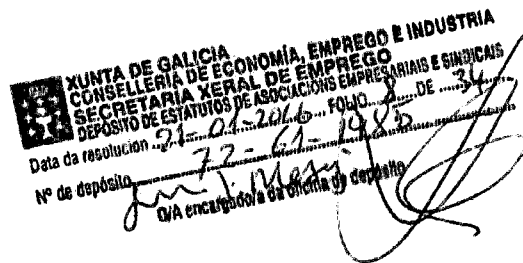 XUNTA DE GALICIA
CONSELLERÍA DE ECONOMÍA, EMPREGO E INDUSTRIA
SECRETARIA XERAL DE EMPREGO
DEPÓSITO DE ESTATUTOS DE ASOCIACIÓNS EMPRESARIAIS E SINDICAIS
Data da resolución 21-01-2016 FOLIO 8 DE 34
Nº de depósito 72-61-1985
O/A encargado/a da oficina de depósito